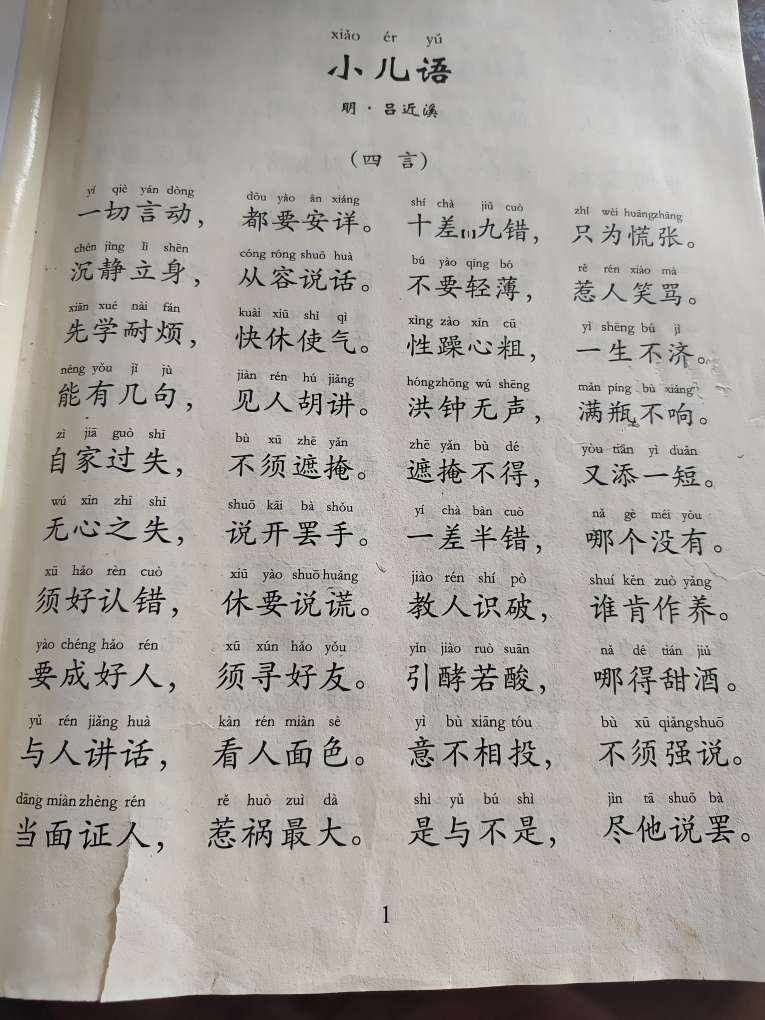 xiǎo ér yǔ
小儿语
明·吕近溪
（四言）
yí qiè yán dòng dōu yào ān xiáng shí chà jiǔ cuò zhǐ wèi huāngzhāng
一切言动， 都要安详。 十差[1]九错， 只为慌张。
chén jìng lì shēn cóng róng shuō huà bú yào qīng bó rě rén xiào mà
沉静立身， 从容说话。 不要轻薄， 惹人笑骂。
xiān xué nài fán kuài xiū shǐ qì xìng zào xīn cū yì shēng bú jì
先学耐烦， 快休使气。 性躁心粗， 一生不济。
néng yǒu jǐ jù jiàn rén hú jiǎng hóngzhōng wú shēng mǎn píng bù xiǎng
能有几句， 见人胡讲。 洪钟无声， 满瓶不响。
zì jiā guò shī bù xū zhē yǎn zhē yǎn bù dé yòu tiān yì duǎn
自家过失， 不须遮掩。 遮掩不得， 又添一短。
wú xīn zhī shī shuō kāi bà shǒu yí chà bàn cuò nǎ gè méi yǒu
无心之失， 说开罢手。 一差半错， 哪个没有。
xū hǎo rèn cuò xiū yào shuō huǎng jiào rén shí pò shuí kěn zuò yǎng
须好认错， 休要说谎。 教人识破， 谁肯作养。
yào chéng hǎo rén xū xún hǎo yǒu yǐn jiào ruò suān nǎ dé tián jiǔ
要成好人， 须寻好友。 引酵若酸， 哪得甜酒。
yǔ rén jiǎng huà kàn rén miàn sè yì bù xiāng tóu bù xū qiǎngshuō
与人讲话， 看人面色。 意不相投， 不须强说。
dāng miàn zhèng rén rě huò zuì dà shì yǔ bú shì jìn tā shuō bà
当面证人， 惹祸最大。 是与不是， 尽他说罢。
1